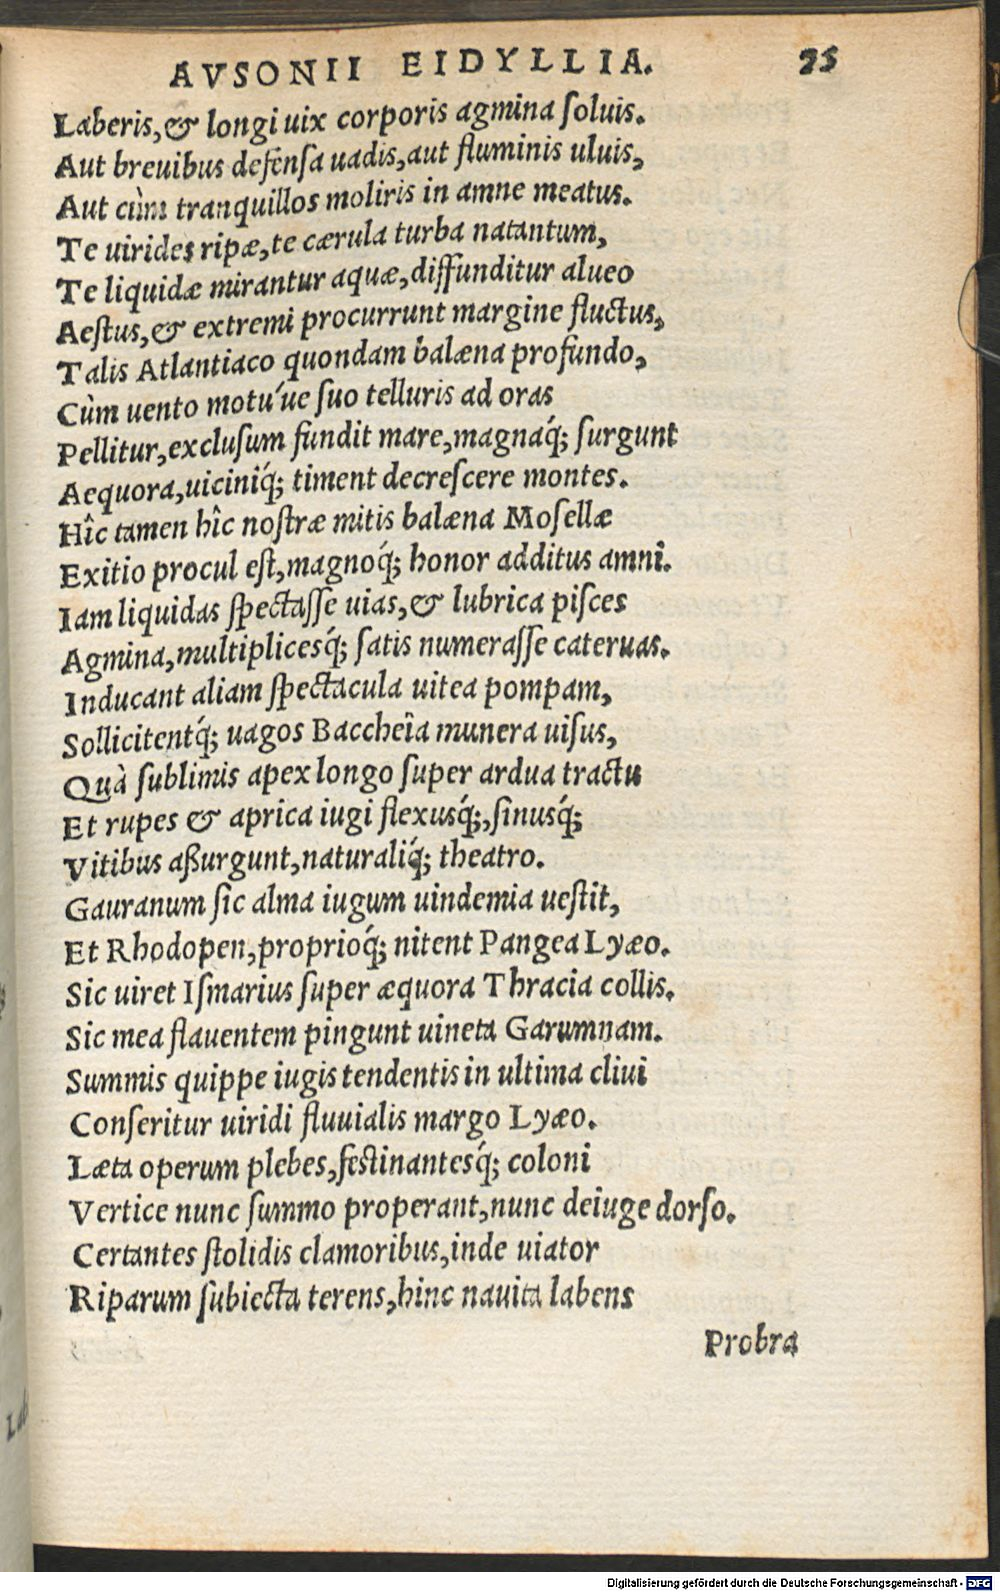 AVSONII EIDYLLIA. 75
Laberis, & longi uix corporis agmina ſoluis.
Aut breuibus defenſa uadis, aut fluminis uluis,
Aut cùm tranquillos moliris in amne meatus.
Te uirides ripæ, te cærula turba natantum,
Te liquidæ mirantur aquæ, diffunditur alueo
Aeſtus, & extremi procurrunt margine fluctus,
Talis Atlantiaco quondam balæna profundo,
Cùm uento motu´ue ſuo telluris ad oras
Pellitur, excluſum fundit mare, magnaq́; ſurgunt
Aequora, uiciniq́; timent decreſcere montes.
Hîc tamen hîc noſtræ mitis balæna Moſellæ
Exitio procul eſt, magnoq́; honor additus amni.
Iam liquidas ſpectaſſe uias, & lubrica piſces
Agmina, multiplicesq́; ſatis numeraſſe cateruas.
Inducant aliam ſpectacula uitea pompam,
Sollicitentq́; uagos Baccheîa munera uiſus,
Quà ſublimis apex longo ſuper ardua tractu
Et rupes & aprica iugi flexusq́;, ſinusq́;
Vitibus aßurgunt, naturaliq́; theatro.
Gauranum ſic alma iugum uindemia ueſtit,
Et Rhodopen, proprioq́; nitent Pangea Lyæo.
Sic uiret Iſmarius ſuper æquora Thracia collis.
Sic mea flauentem pingunt uineta Garumnam.
Summis quippe iugis tendentis in ultima cliui
Conſeritur uiridi fluuialis margo Lyæo.
Læta operum plebes, feſtinantesq́; coloni
Vertice nunc ſummo properant, nunc deiuge dorſo.
Certantes ſtolidis clamoribus, inde uiator
Riparum ſubiecta terens, hinc nauita labens
Probra
Digitalisierung gefördert durch die Deutsche Forschungsgemeinschaft - DFG